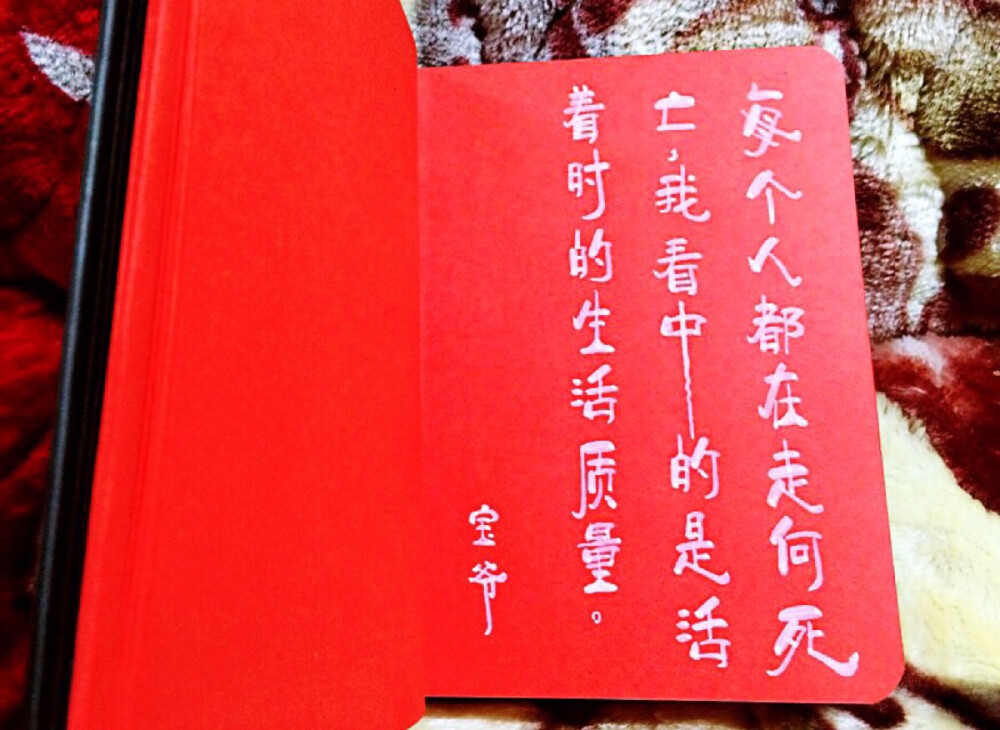 每个人都在走何死
亡,我看中的是活
着时的生活质量。
宝爷